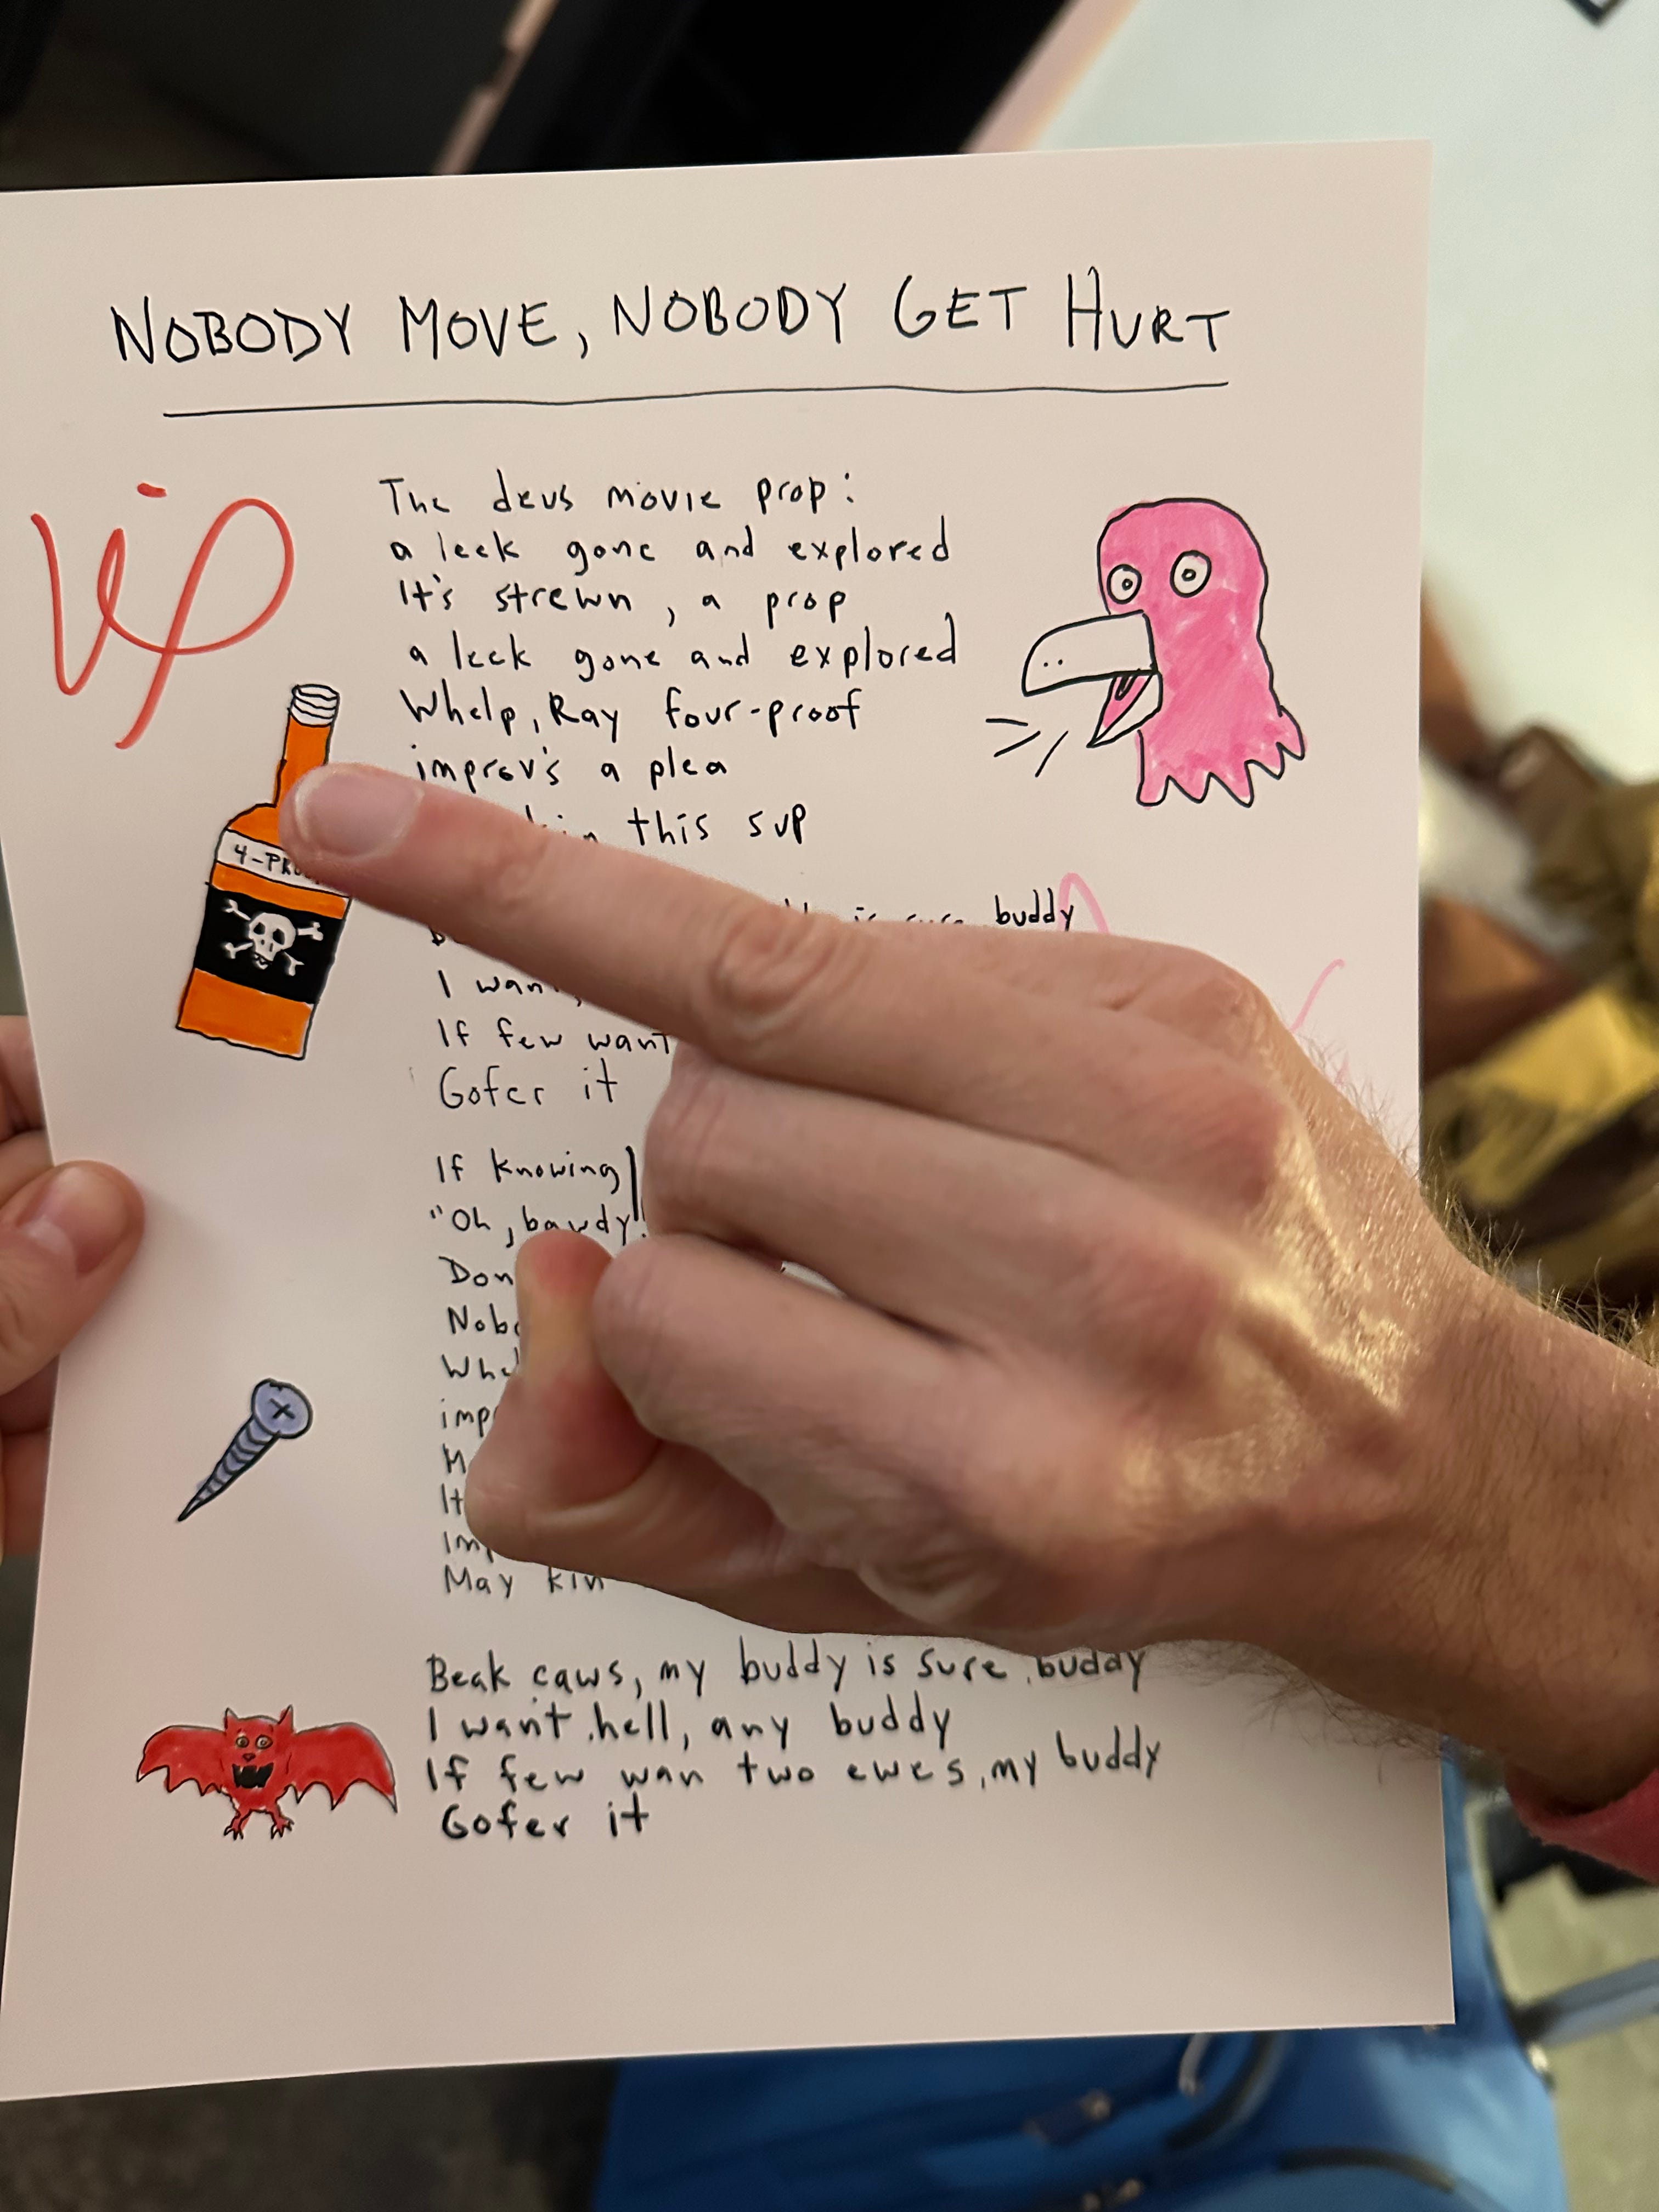 NOBODY MOVE, NOBODY GET HURT
VIP
The deus movie prop:
a leek gone and explored
It's strewn, a prop
a leek gone and explored
Whelp, Ray four-proof
improv's a plea
this sup
4-PROO
buddy
I wan
If few want
Gofer it
If knowing
"Oh, bawdy!
Don
Nobo
Whel
imp
M
It
Imp
May kin
Beak caws, my buddy is sure buddy
I want hell, any buddy
If few wan two ewes, my buddy
Gofer it